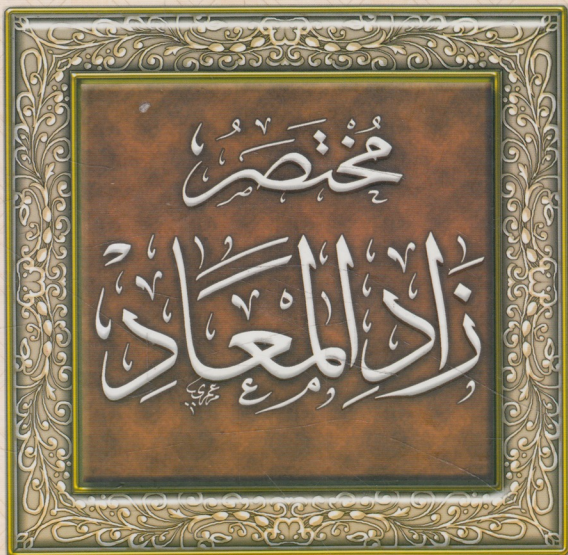 مُخْتَصَرُ
زَادِ المَعَادِ